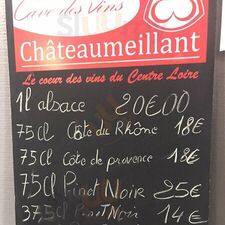 Cave des Vins
Châteaumeillant
Le coeur des vins du Centre Loire
1l alsace 20€00
75cl Côte du Rhône 18€
75cl Côte de provence 18€
75cl Pinot Noir 25€
37,5cl Pinot Noir 14€